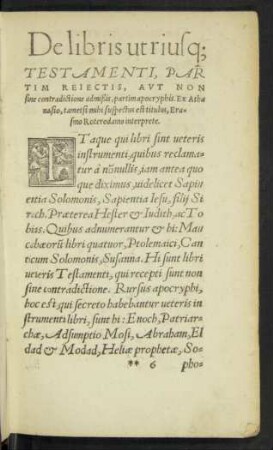 De libris utriusq;
TESTAMENTI, PAR
TIM REIECTIS, AVT NON
sine contradictione admissis, partim apocryphis. Ex Atha
nasio, tametsi mihi suspectus est titulus, Eras
mo Roterodamo interprete.
ITaque qui libri sint ueteris
instrumenti, quibus reclama-
tur á nõnullis, iam antea quo
que diximus, uidelicet Sapi
entia Solomonis, Sapientia Iesu, filij Si
rach. Præterea Hester & Iudith, ac To
bias. Quibus adnumerantur & hi: Mac
cabæorũ libri quatuor, Ptolemaici, Can
ticum Solomonis, Susanna. Hi sunt libri
ueteris Testamenti, qui recepti sunt non
sine contradictione. Rursus apocryphi,
hoc est qui secreto habebantur ueteris in
strumenti libri, sunt hi: Enoch, Patriar-
chæ, Adsumptio Mosi, Abraham, El
dad & Modad, Heliæ prophetæ, So-
** 6 pho-